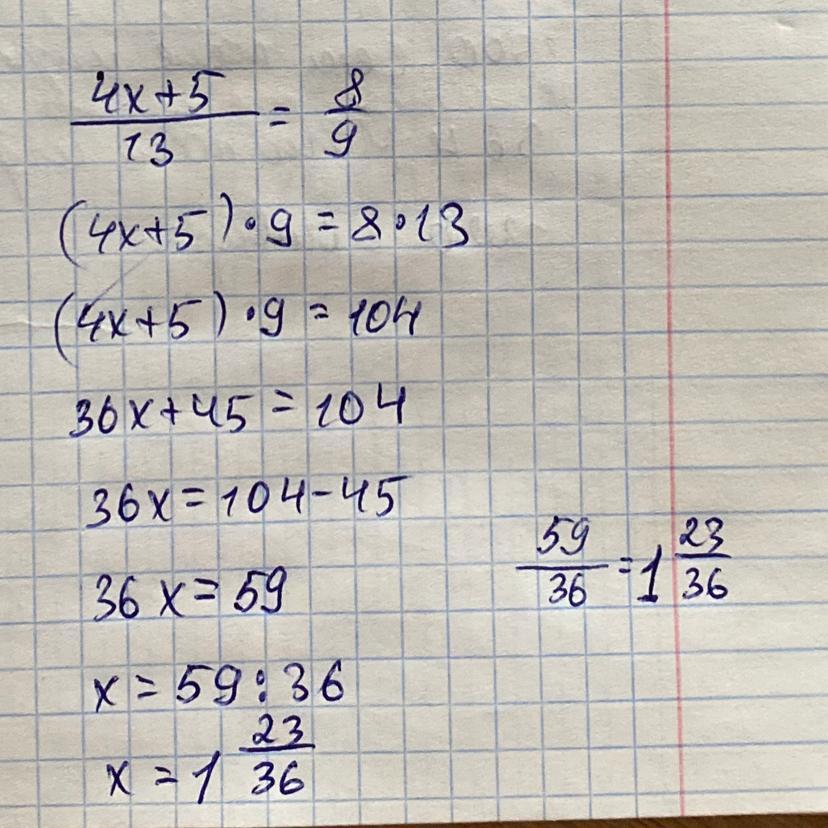 (4x+5)/13 = 8/9
(4x+5)·9=8·13
(4x+5)·9=104
36x+45=104
36x=104-45
36x=59
59/36 = 1 23/36
x=59:36
x=1 23/36